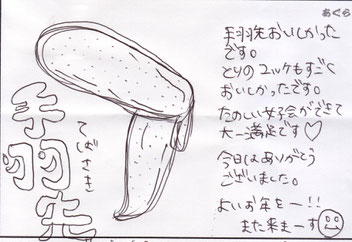 あぐら
手羽先おいしかった
です。
とりのユッケもすごく
おいしかったです。
たのしい女子会ができて
大満足です♡
今日はありがとう
ございました。
よいお年をー!!
また来まーす
手羽先
てばさき